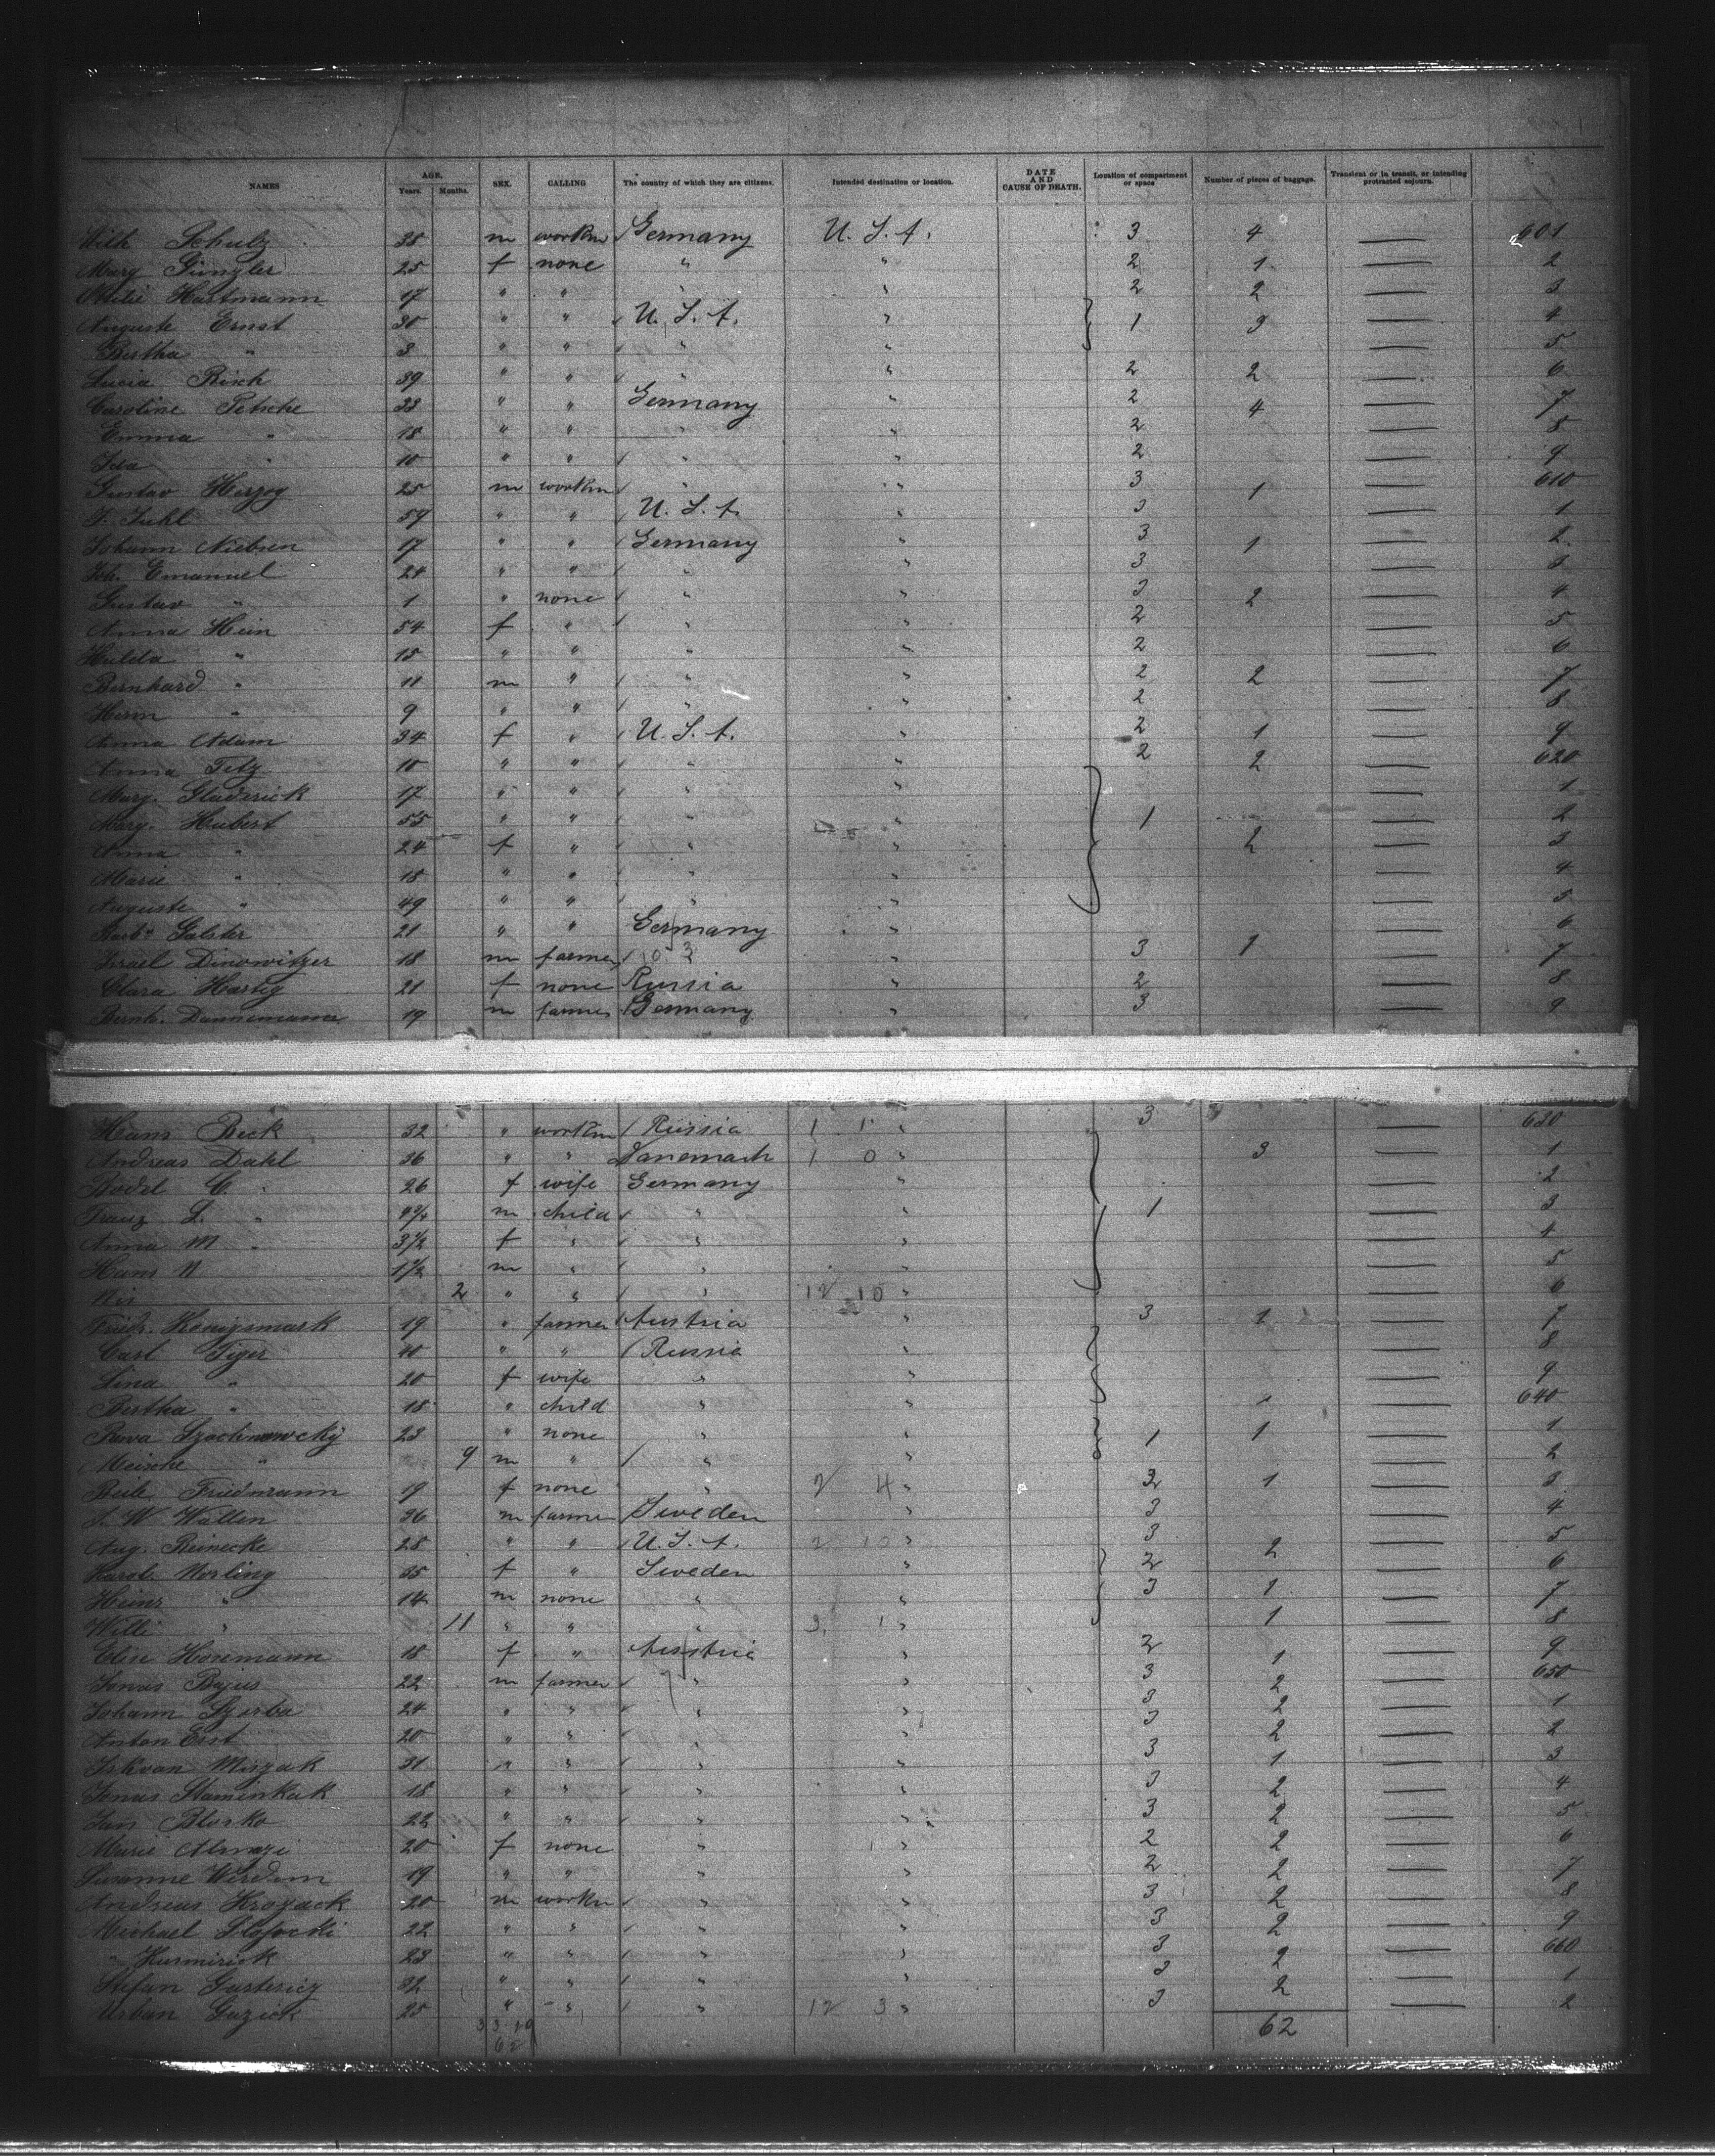 NAMES AGE. Years. Months. SEX. CALLING The country of which they are citizens. Intended destination or location. DATE AND CAUSE OF DEATH. Location of compartment or space Number of pieces of baggage. Transient or in transit, or intending protracted sojourn.
Wilh Schulz 38 m workm Germany U. S. A. 3 4 — 601
Mary Güngler 25 f none " " 2 1 — 2
Hartmann 17 " " " " 2 2 — 3
Auguste Ernst 30 " " U. S. A. " 1 3 — 4
Bertha " 3 " " " " — 5
Lucia Risch 39 " " " " 2 2 — 6
Caroline Petsche 33 " " Germany " 2 4 — 7
Emma " 18 " " " " 2 — 8
Ida " 10 " " " " 2 — 9
Gustav Herzog 25 m workm " " 3 1 — 610
J. Juhl 57 " " U. S. A. " 3 — 1
Johann Nielsen 17 " " Germany " 3 1 — 2
Joh. Emanuel 24 " " " " 3 — 3
Gustav " 1 " none " " 3 2 — 4
Anna Hein 54 f " " " 2 — 5
Hulda " 15 " " " " 2 — 6
Bernhard " 11 m " " " 2 2 — 7
Herm " 9 " " " " 2 — 8
Anna Adam 34 f " U. S. A. " 2 1 — 9
Anna Tetz 10 " " " " 2 2 — 620
Marg. Gladrick 17 " " " " — 1
Marg. Hubert 55 " " " " 1 — 2
Anna " 24 f " " " 2 — 3
Marie " 18 " " " " — 4
Auguste " 49 " " " " — 5
Galster 21 " " Germany " — 6
Israel Dinowitzer 18 m farmer 10 3 " 3 1 — 7
Clara Hartig 21 f none Russia " 2 — 8
Bernh. Dannemann 19 m farmer Germany " 3 — 9
Hans Beck 32 " workm Russia 1 1 " 3 630
Andreas Dahl 36 " " Danemark 1 0 " 3 — 1
Bodel C. " 26 f wife Germany " — 2
Franz L. " m child " " 1 — 3
Anna M " 3½ f " " " — 4
Hans N 1½ m " " " — 5
2 " " " 12 10 " — 6
Friedr. Königsmark 19 " farmer Austria " 3 1 — 7
Carl Tiger 40 " " Russia " — 8
Lina " 20 f wife " " — 9
Bertha " 18 " child " " 1 — 640
23 " none " " 1 1 — 1
Meische " 9 m " " " — 2
Beile Friedmann 19 f none " 2 4 " 2 1 — 3
J. W Wallen 36 m farmer Sweden " 3 — 4
Aug. Reinecke 28 " " U. S. A. 2 10 " 3 2 — 5
Karol. Norling 35 f " Sweden " 2 — 6
Heinr " 14 m none " " 3 1 — 7
Willi " 11 " " " 3 1 " 1 — 8
Elise Horemann 18 f " Austria " 2 1 — 9
Jonas Bajus 22 m farmer " " 3 2 — 650
Johann Szerba 24 " " " " 3 2 — 1
Anton Erst 20 " " " " 3 2 — 2
Istvan Miszak 31 " " " " 3 1 — 3
Jonas Staminkak 18 " " " " 3 2 — 4
Jan Blosko 22 " " " " 3 2 — 5
Marie Almazi 20 f none " " 2 2 — 6
Susanne Werdom 19 " " " " 2 2 — 7
Andreas Krozack 20 m workm " " 3 2 — 8
Michael 22 " " " " 3 2 — 9
" Kusmirick 23 " " " " 3 2 — 660
Stefan 32 " " " " 3 2 — 1
Urban Guzick 25 " " " 12 3 " 3 — 2
62
62